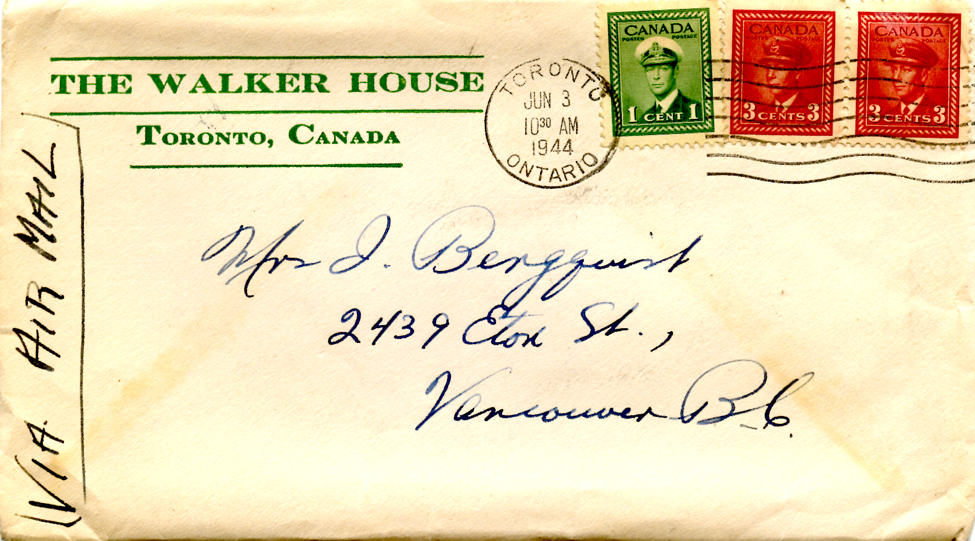 THE WALKER HOUSE
TORONTO, CANADA
TORONTO
JUN 3
10³⁰ AM
1944
ONTARIO
CANADA
POSTES POSTAGE
1 CENT 1
CANADA
POSTES POSTAGE
3 CENTS 3
CANADA
POSTES POSTAGE
3 CENTS 3
VIA AIR MAIL
Mrs J. Bergquist
2439 Eton St.,
Vancouver B.C.